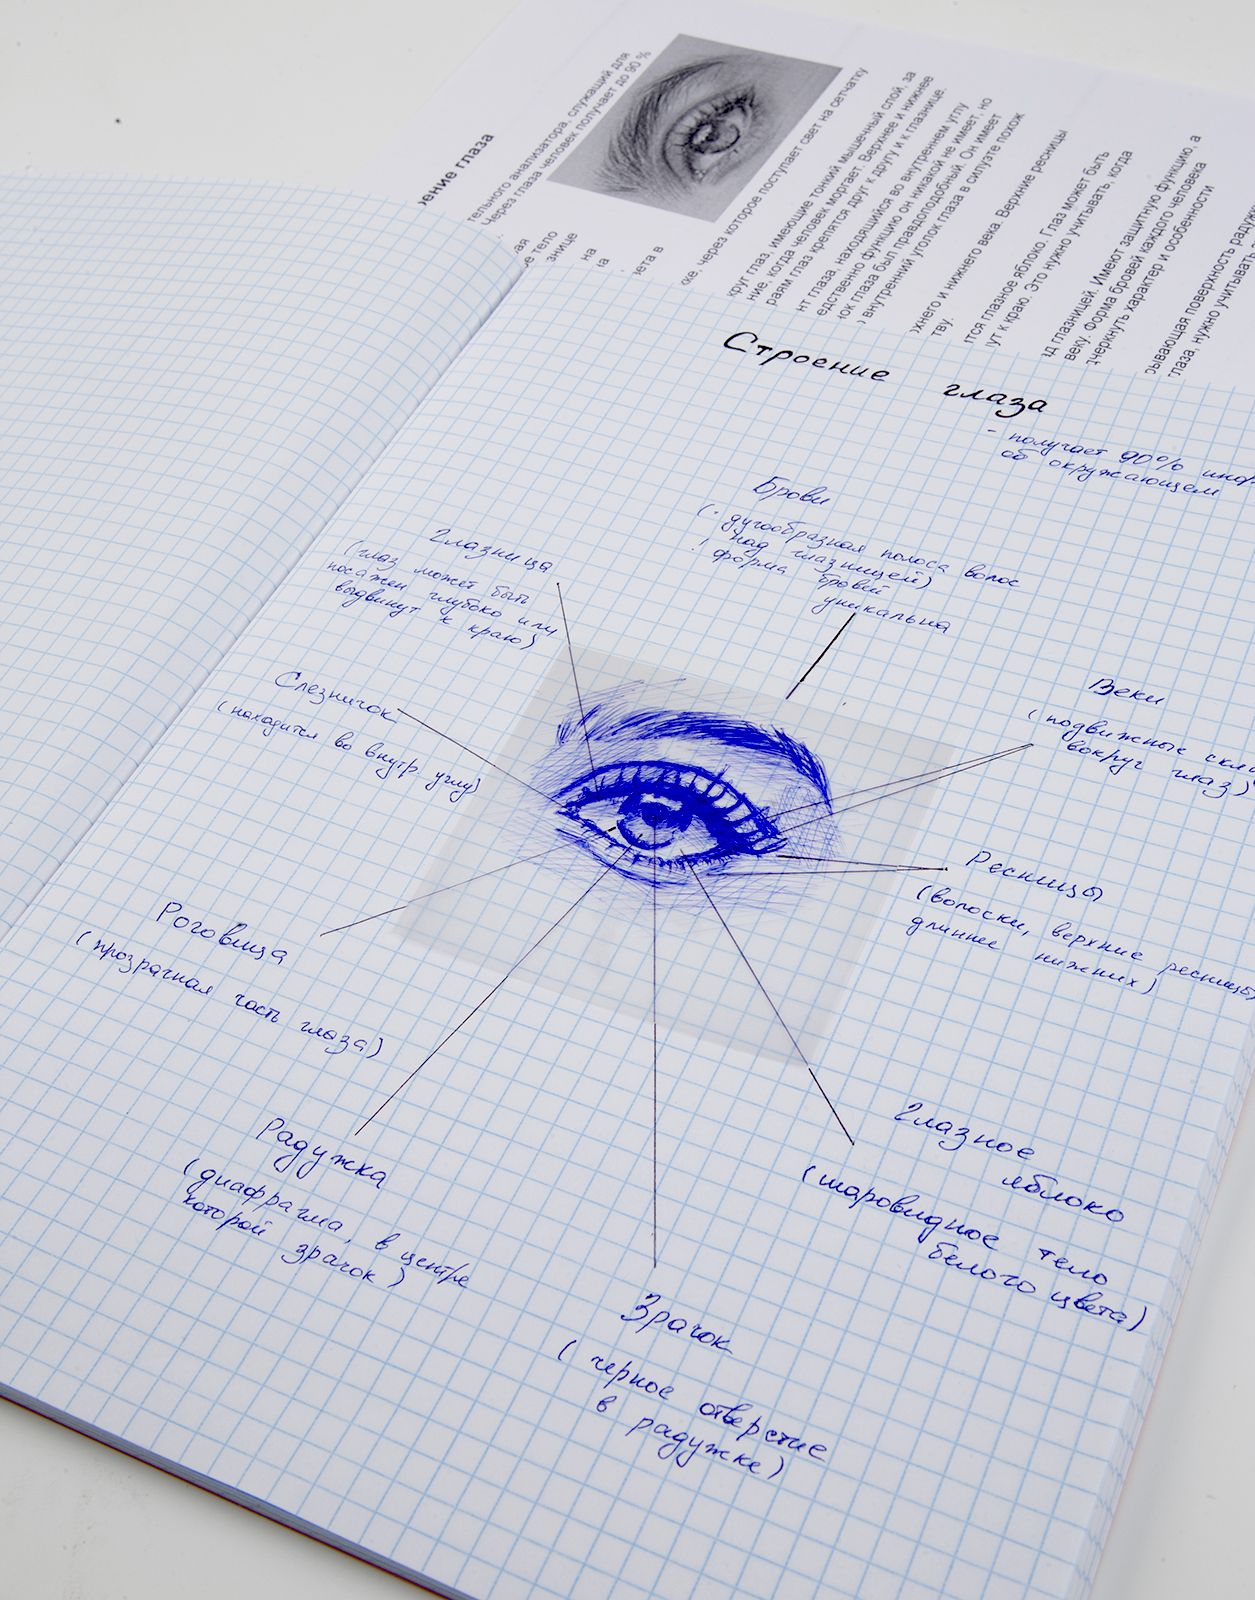 ение глаза
тельного анализатора, служащий для
Через глаза человек получает до 90 %
ая
ре тело
знице
на
та
ета в
ке, через которое поступает свет на сетчатку
круг глаз, имеющие тонкий мышечный слой, за
ние, когда человек моргает. Верхнее и нижнее
раям глаз крепятся друг к другу и к глазнице.
нт глаза, находящийся во внутреннем углу
едственно функцию он никакой не имеет, но
ок глаза был правдоподобный. Он имеет
внутренний уголок глаза в силуэте похож
хнего и нижнего века. Верхние ресницы
тву.
тся глазное яблоко. Глаз может быть
ут к краю. Это нужно учитывать, когда
д глазницей. Имеют защитную функцию, а
веку. Форма бровей каждого человека
дчеркнуть характер и особенности
рывающая поверхность радужк
глаза, нужно учитывать
Строение глаза
- получает 90% инф
об окружающем
Брови
(· дугообразная полоса волос
над глазницей)
! форма бровей
уникальна
Глазница
(глаз может быть
посажен глубоко или
выдвинут к краю)
Слезничок
(находится во внутр. углу)
Веки
(подвижные скл
вокруг глаз)
Ресницы
(волоски, верхние ресницы
длиннее нижних)
Роговица
(прозрачная часть глаза)
Радужка
(диафрагма, в центре
которой зрачок)
Глазное
яблоко
(шаровидное тело
белого цвета)
Зрачок
(черное отверстие
в радужке)